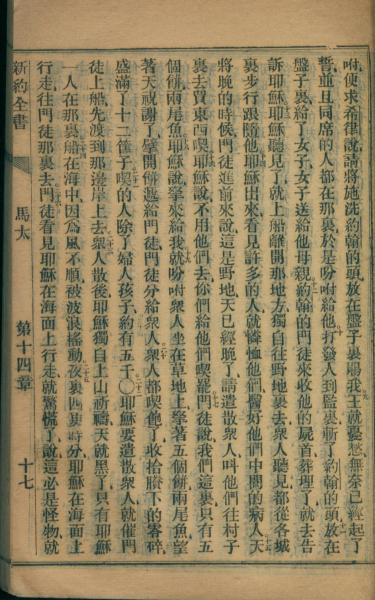 咐便求希律說請將施洗約翰的頭放在盤子裏賜我王就憂愁無奈已經起了
誓並且同席的人都在那裏於是吩咐給他打發人到監裏斬了約翰的頭放在
盤子裏給了女子女子送給他母親約翰的門徒來收他的屍首葬埋了就去告
訴耶穌耶穌聽見了就上船離開那地方獨自往野地裏去衆人聽見都從各城
裏步行跟隨他耶穌出來看見許多的人就憐恤他們醫好他們中間的病人天
將晚的時候門徒進前來說這是野地天已經晚了請遣散衆人叫他們往村子
裏去買東西喫耶穌說不用他們去你們給他們喫罷門徒說我們這裏只有五
個餅兩尾魚耶穌說拏來給我就吩咐衆人坐在草地上拏著五個餅兩尾魚望
著天祝謝了擘開餅遞給門徒門徒分給衆人衆人都喫飽了收拾賸下的零碎
盛滿了十二筐子喫的人除了婦人孩子約有五千〇耶穌要遣散衆人就催門
徒上船先渡到那邊岸上去衆人散後耶穌獨自上山祈禱天就黑了只有耶穌
一人在那裏船在海中因爲風不順被波浪搖動夜裏四更時分耶穌在海面上
行走往門徒那裏去門徒看見耶穌在海面上行走就驚慌了說這必是怪物就
新約全書 馬太 第十四章 十七